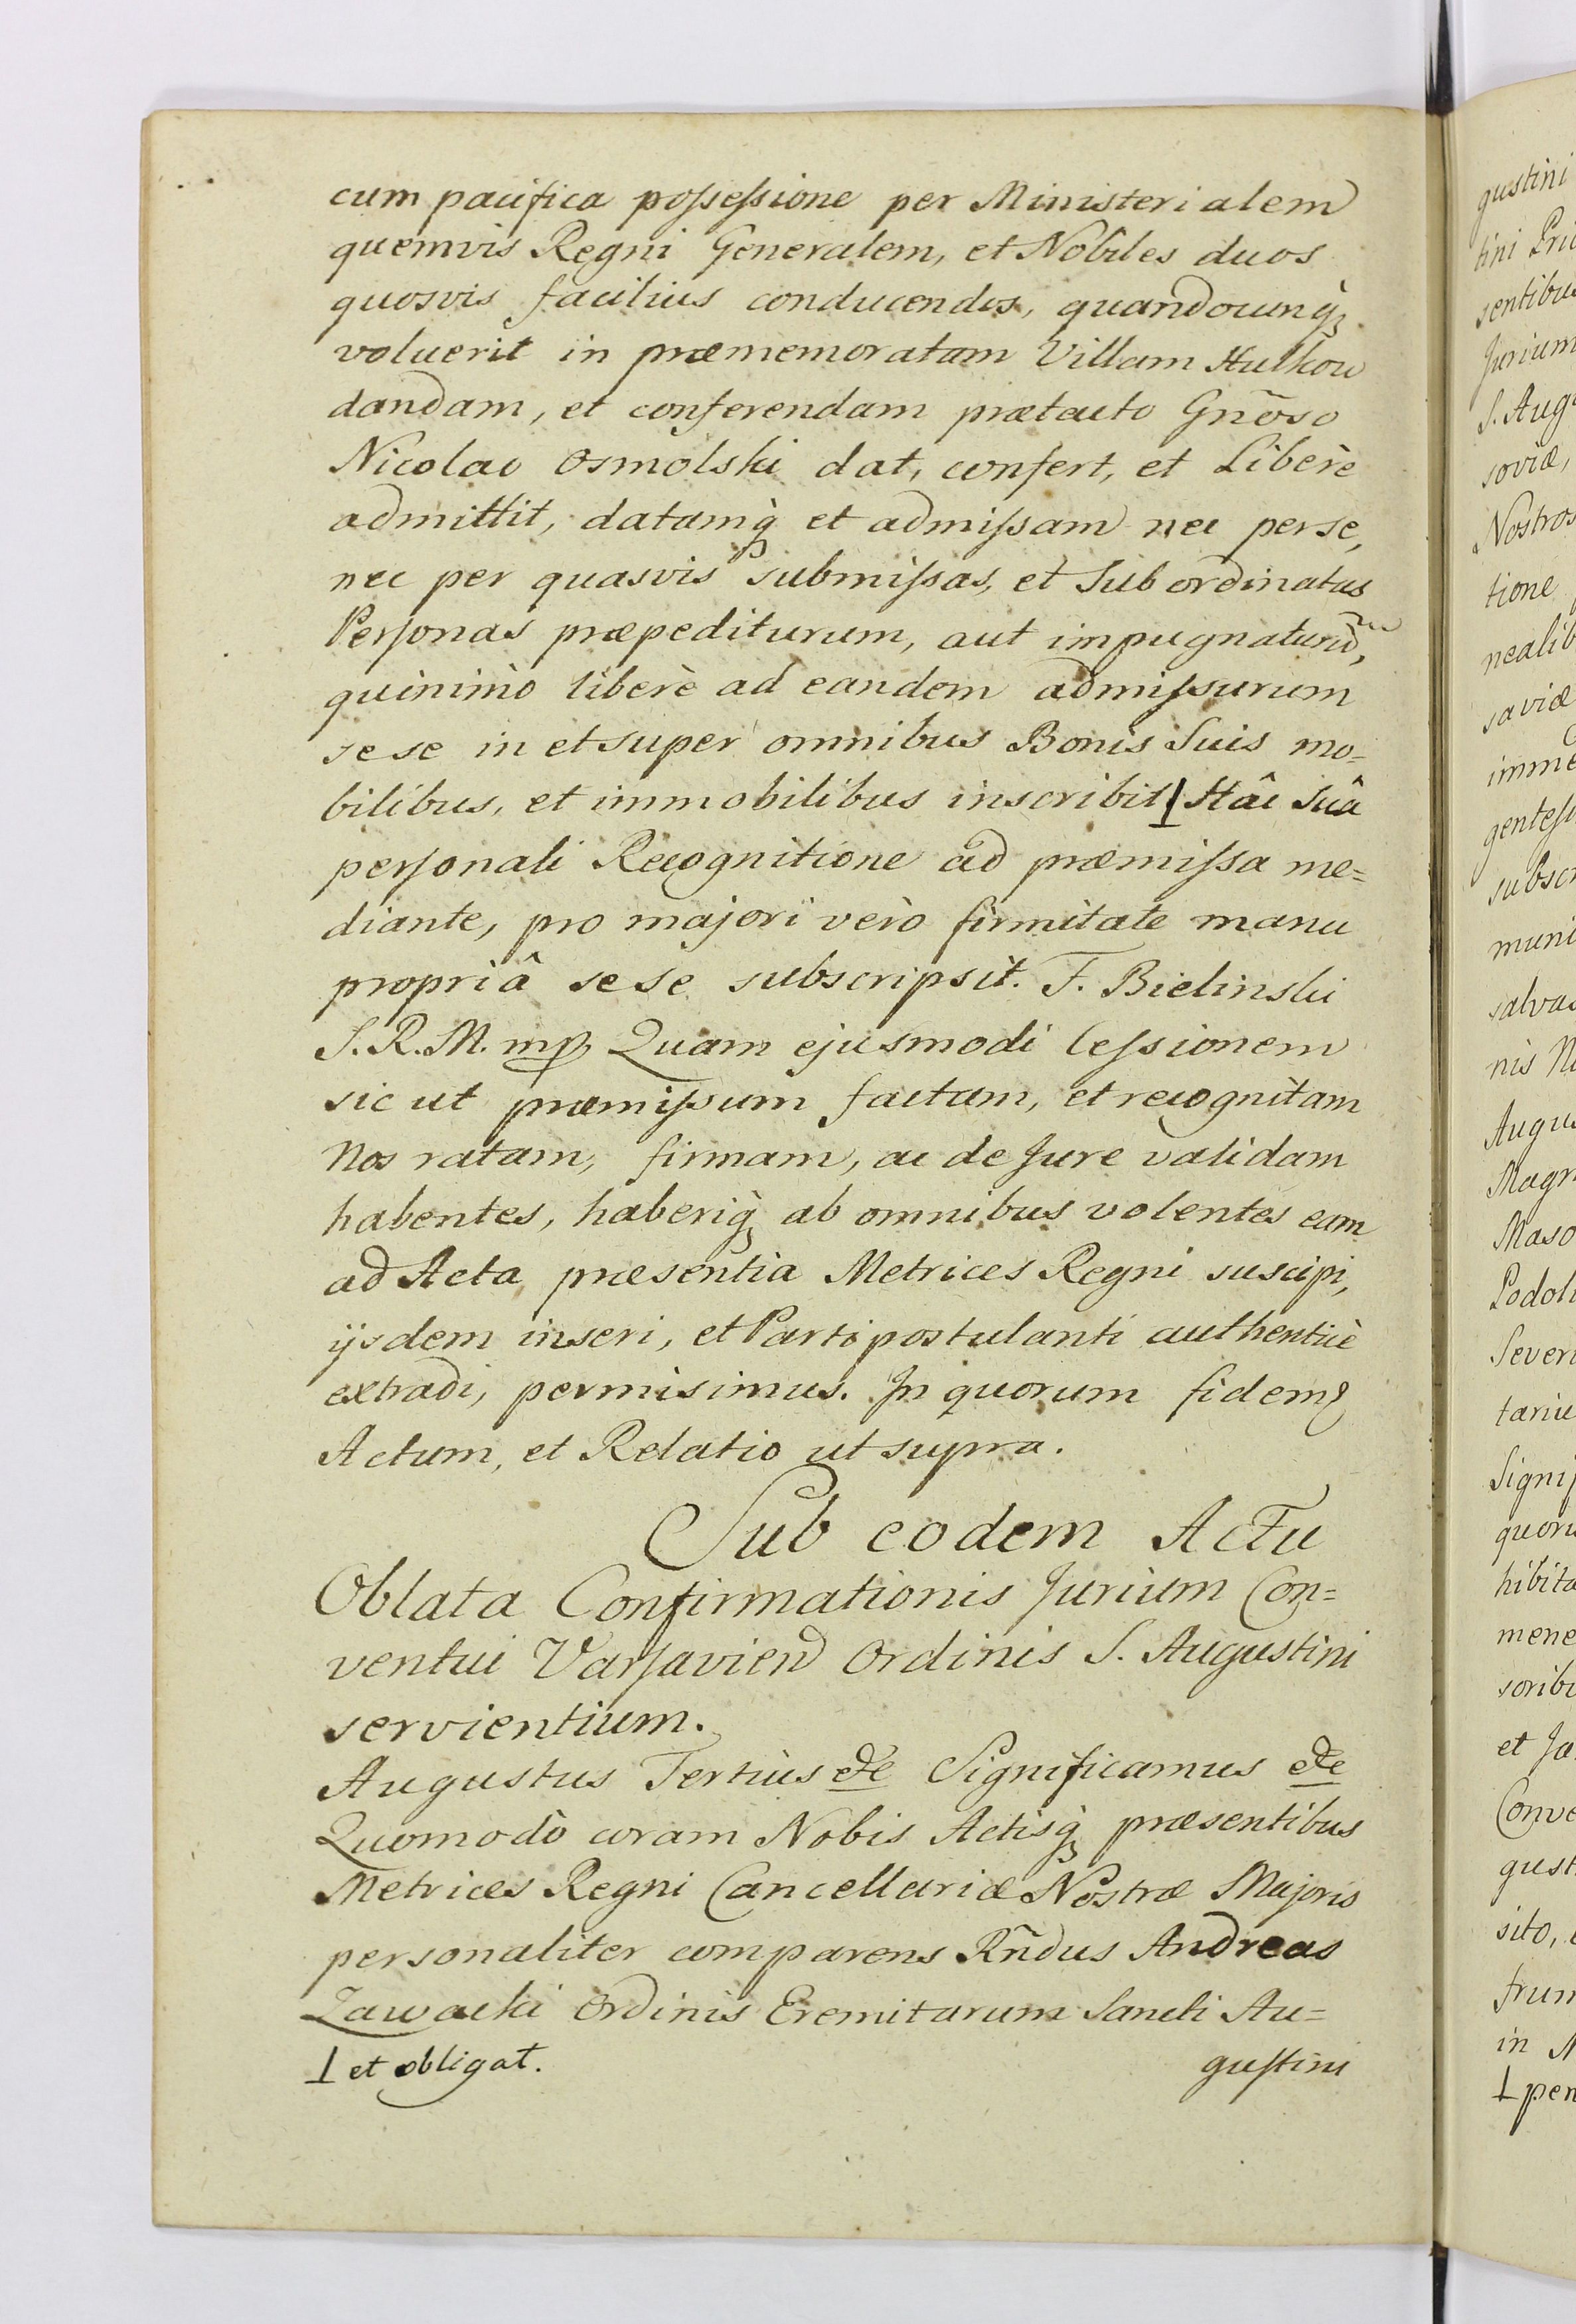 cum pacifica poſseſsione per Ministerialem
quemvis Regni Generalem, et Nobiles duos
quosvis facilius conducendos, quandocunq̀
voluerit in præmemoratam Villam Hulkow
dandam, et conferendam prætacto Gñoso
Nicolao Osmolski dat, confert, et Liberè
admittit, datamq̀ et admiſsam nec per se,
nec per quasvis submiſsas, et Subordinatas
Perſonas præpediturum, aut impugnaturũ,
quinimò liberè ad eandem admiſsurum
sese in et super omnibus Bonis Suis mo=
bilibus, et immobilibus inscribit ⊥ Hâc Suâ
perſonali Recognitione ad præmiſsa me=
diante, pro majori verò firmitate manu
propriâ sese subscripsit. F. Bielinski
S. R. M. mp Quam ejusmodi Ceſsionem
sic ut præmiſsum factam, et recognitam
Nos ratam, firmam, ac de Jure validam
habentes, haberiq̀ ab omnibus volentes eam
ad Acta præsentia Metrices Regni suscipi,
ijsdem inseri, et Parti postulanti authenticè
extradi, permisimus. In quorum fidem
Actum, et Relatio ut supra.
Sub eodem Actu
Oblata Confirmationis Jurium Con=
ventui Varſavien Ordinis S. Augustini
servientium.
Augustus Tertius etc Significamus etc
Quomodò coram Nobis Actisq̀ præsentibus
Metrices Regni Cancellariæ Nostræ Majoris
personaliter comparens Rñdus Andreas
Zawacki Ordinis Eremitarum Sancti Au=
⊥ et obligat.
guſtini
gustini
sentibus
Jurium
soviæ,
Nostros
tione
saviæ
salvas
Podoli
hibita
sito,
in N
⊥ pen